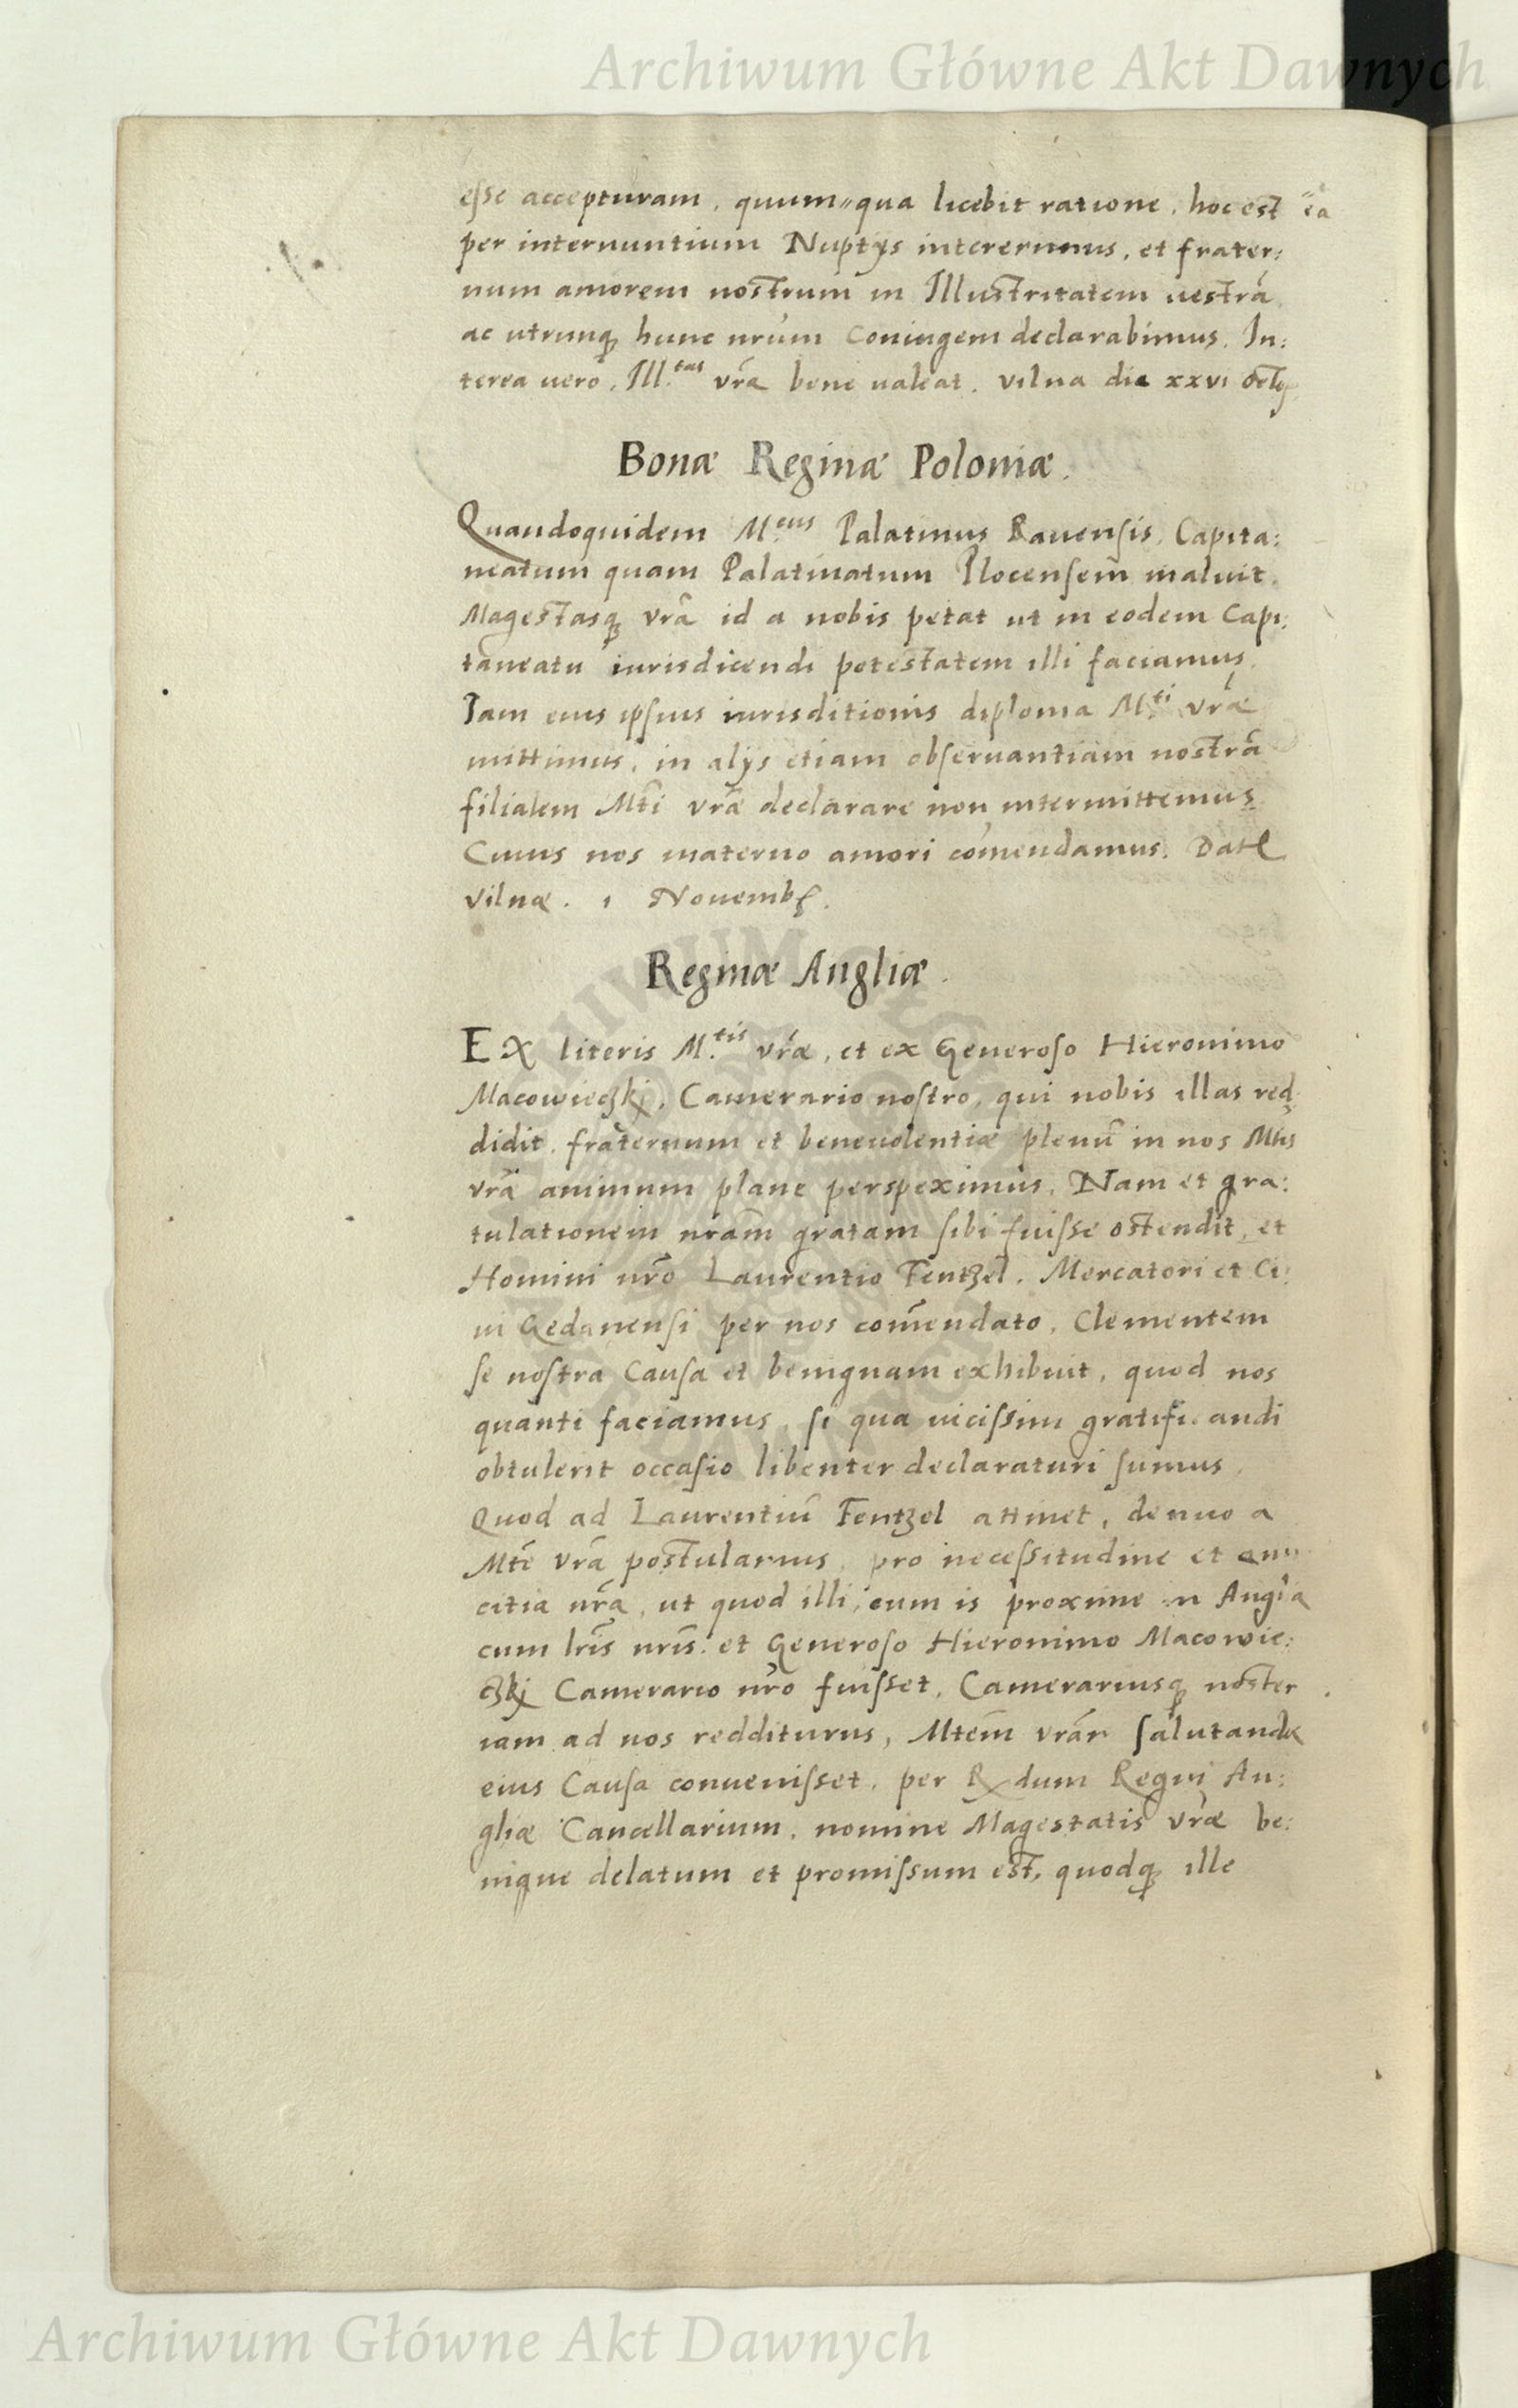 Archiwum Główne Akt Dawnych
eſse accepturam, quum〃qua licebit ratione, hoc est 〃ea
per internuntium Nuptijs intererimus, et frater:
num amorem nostrum in Illustritatem uestrā
ac utrunqꝫ hunc nrūm Coniugem declarabimus. In:
terea uero, Ill.tas vrā bene ualeat. vilna die xxvi
Bonæ Reginæ Poloniæ.
Quandoquidem M.cus Palatinus Rauenſis, Capita:
neatum quam Palatinatum Plocenſem maluit.
Magestasqꝫ vrā id a nobis petat ut in eodem Capi:
taneatu iurisdicendi potestatem illi faciamus.
Iam eius ipſius iurisditionis diploma M.ti vræ
mittimus, in alijs etiam obſeruantiam nostrā
filialem Mti vræ declarare non intermittemus
Cuius nos materno amori comendamus. Dat
vilnæ. 1 Novemb.
Reginæ Angliæ.
Ex literis M.tis vræ, et ex Generoſo Hieronimo
Macowieczkj, Camerario noſtro, qui nobis illas red:
didit, fraternum et beneuolentiæ plenū in nos Mtis
vræ animum plane perspeximus. Nam et gra:
tulationem nram gratam ſibi fuiſse ostendit, et
Homini nrō Laurentio Fentzel, Mercatori et Ci:
ui Gedanenſi per nos comēndato, Clementem
ſe noſtra Cauſa et benignam exhibuit, quod nos
quanti faciamus, ſi qua uiciſsim gratificandi
obtulerit occaſio libenter declaraturi ſumus.
Quod ad Laurentiū Fentzel attinet, denuo a
Mtē vrā postulamus, pro neceſsitudine et ami
citia nrā, ut quod illi, cum is proxime in Anglia
cum lrīs nrīs et Generoſo Hieronimo Macowie:
czkj Camerario nrō fuiſset, Camerariusqꝫ noster
iam ad nos redditurus, Mtēm vrām ſalutandæ
eius Cauſa conueniſset, per Rdum Regni An:
gliæ Cancellarium, nomine Magestatis vræ be:
nigne delatum et promiſsum est, quodqꝫ ille
Archiwum Główne Akt Dawnych